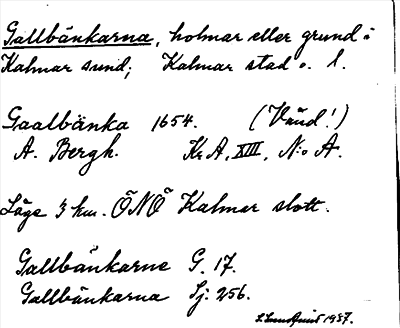 Gallbänkarna, holmar eller grund i
Kalmar sund; Kalmar stad o. l.
Gaalbänka 1654. (Vänd!)
A. Bergh. Kr A, XIII, N:o A.
Läge 3 km. ÖNÖ Kalmar slott.
Gallbänkarne G. 17.
Gallbänkarna Sj. 256.
1937.